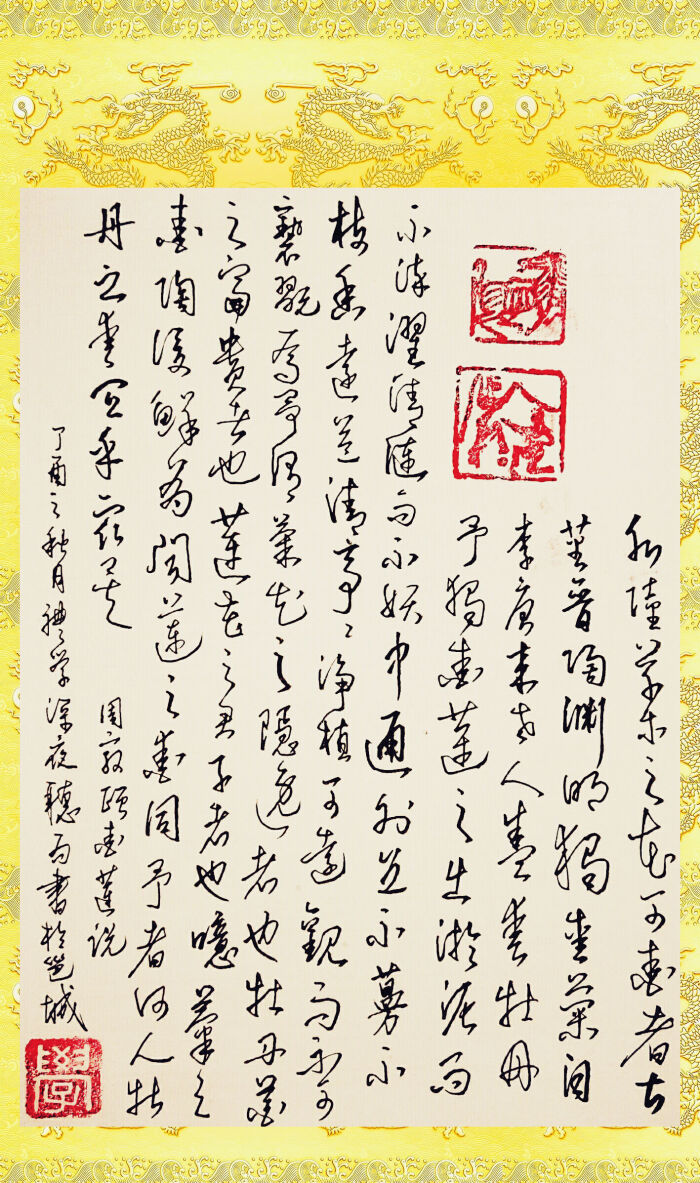 水陸草木之花可愛者甚
蕃晉陶渊明獨愛菊自
李唐来世人盛愛牡丹
予獨愛蓮之出淤泥而
不染濯清漣而不妖中通外直不蔓不
枝香遠益清亭〻净植可遠觀而不可
褻翫焉予謂菊花之隱逸者也牡丹花
之富貴者也蓮花之君子者也噫菊之
愛陶後鮮有聞蓮之愛同予者何人牡
丹之愛宜乎眾矣
周敦頤愛蓮说
丁酉之秋月禮学深夜聽雨書於邕城
學